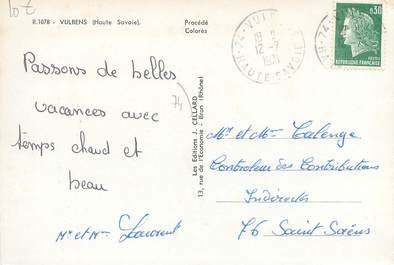 10 F
R.1078 - VULBENS (Haute Savoie).
Procédé
Colorés
74-VULBENS
18 H
12-7
1971
HAUTE SAVOIE
0,30
POSTES
REPUBLIQUE FRANCAISE
74
Passons de belles
vacances avec
temps chaud et
beau
Mr et Mme Laurent
Les Editions J. CELLARD
13, rue de l'Economie - Bron (Rhône)
Mr et Mme Talenge
Controleur des Contributions
Indirects
76 Saint Saëns